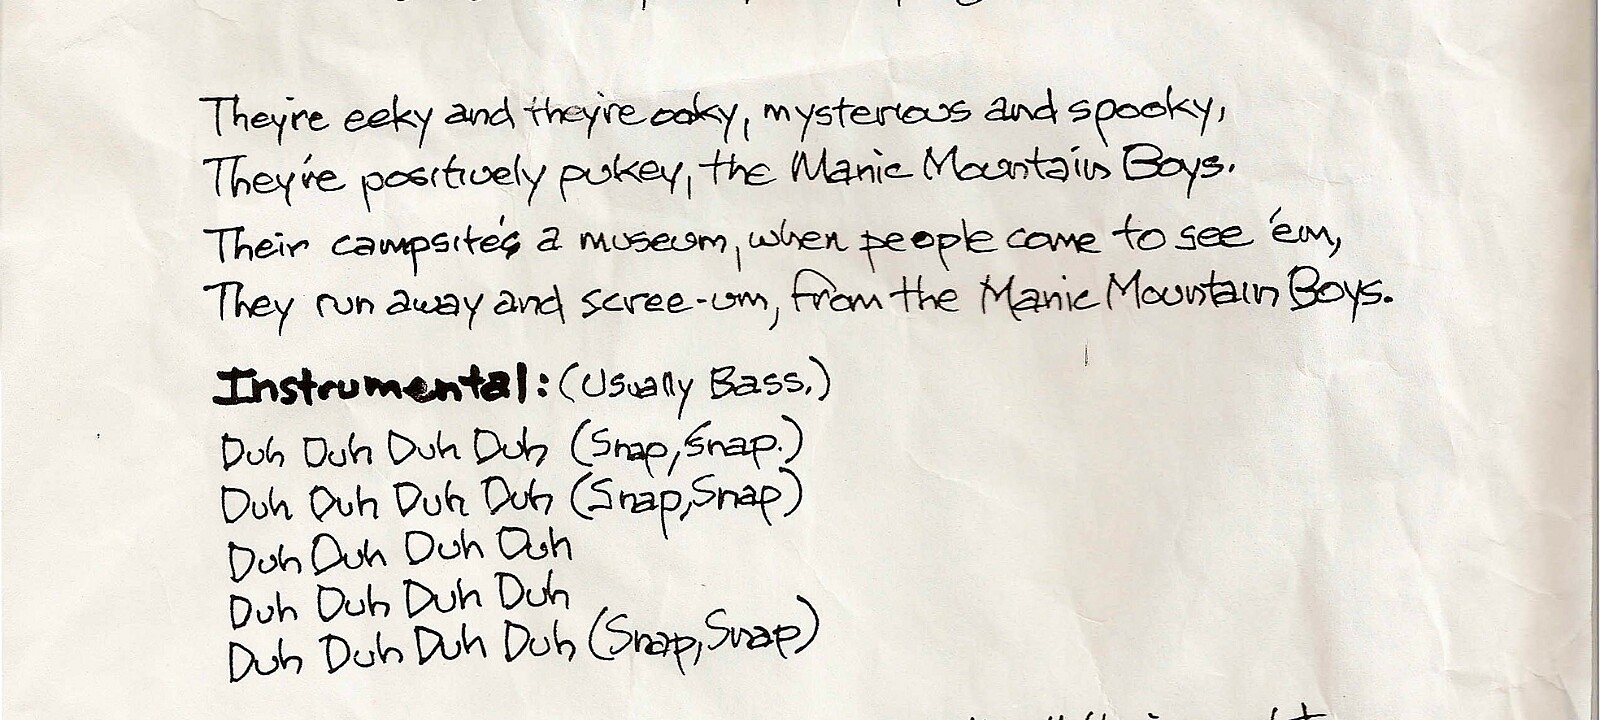 They're eeky and they're ooky, mysterious and spooky,
They're positively pukey, the Manic Mountain Boys.
Their campsite's a museum, when people come to see 'em,
They run away and scree-um, from the Manic Mountain Boys.
Instrumental: (Usually Bass.)
Duh Duh Duh Duh (Snap, Snap.)
Duh Duh Duh Duh (Snap, Snap)
Duh Duh Duh Duh
Duh Duh Duh Duh
Duh Duh Duh Duh (Snap, Snap)